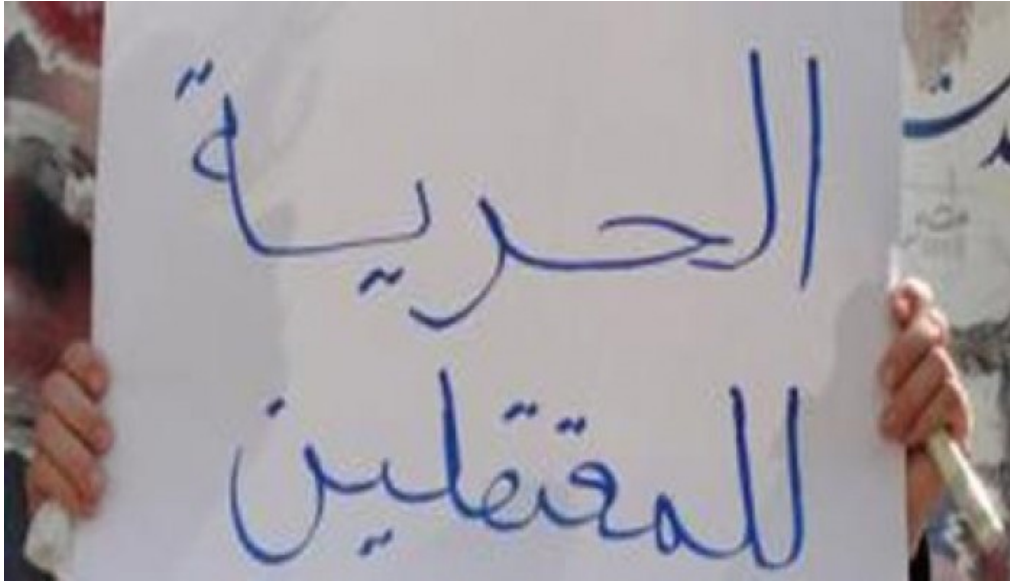 الحرية
للمعتقلين